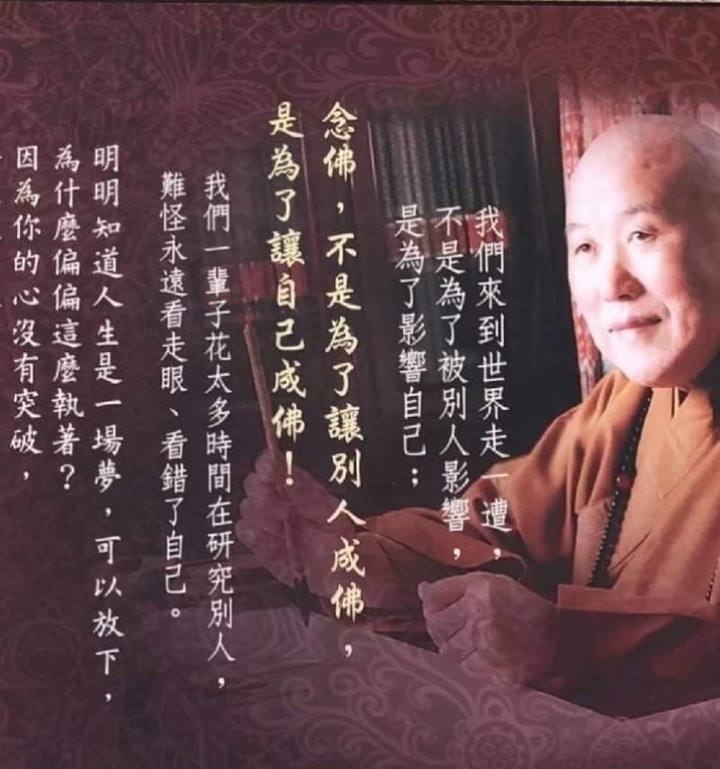 我們來到世界走一遭，
不是為了被別人影響，
是為了影響自己；
念佛，不是為了讓別人成佛，
是為了讓自己成佛！
我們一輩子花太多時間在研究別人，
難怪永遠看走眼、看錯了自己。
明明知道人生是一場夢，可以放下，
為什麼偏偏這麼執著？
因為你的心沒有突破，